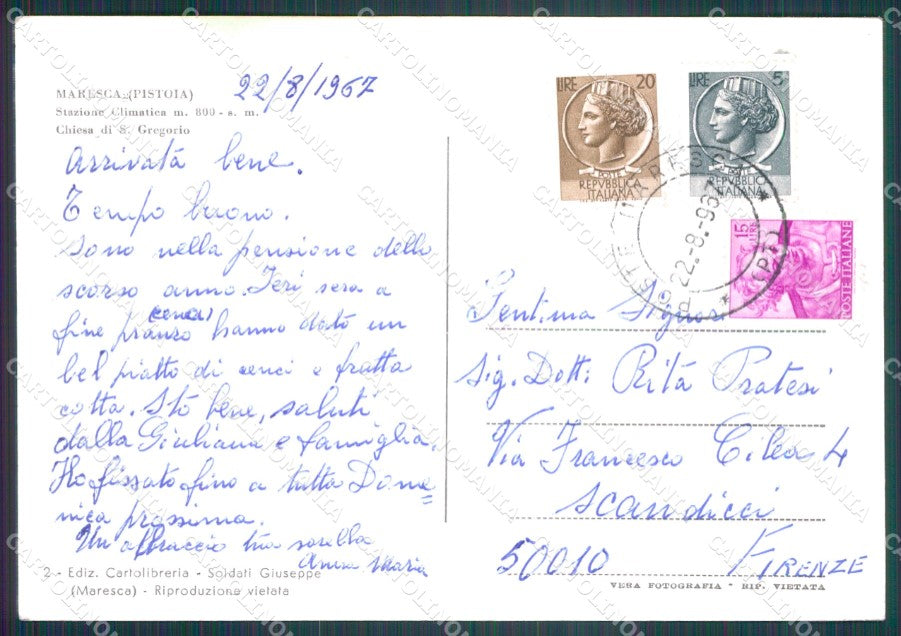 MARESCA (PISTOIA)
Stazione Climatica m. 800 - s. m.
Chiesa di S. Gregorio
22/8/1967
Arrivata bene.
Tempo buono.
Sono nella pensione dello
scorso anno. Ieri sera a
fine pranzo (cena) hanno dato un
bel piatto di cenci e frutta
cotta. Sto bene, saluti
dalla Giuliana e famiglia.
Ho fissato fino a tutta Dome=
nica prossima.
Un abbraccio tua sorella
Anna Maria
2 - Ediz. Cartolibreria - Soldati Giuseppe
(Maresca) - Riproduzione vietata
LIRE 20
POSTE
REPVBBLICA
ITALIANA
LIRE 5
POSTE
REPVBBLICA
ITALIANA
15 LIRE
POSTE ITALIANE
MARESCA
22-8-967
(PT)
Gent.ma Sig.na
Sig. Dott. Rita Pratesi
Via Francesco Cilea 4
Scandicci
50010 FIRENZE
VERA FOTOGRAFIA - RIP. VIETATA
CARTOLINOMANIA